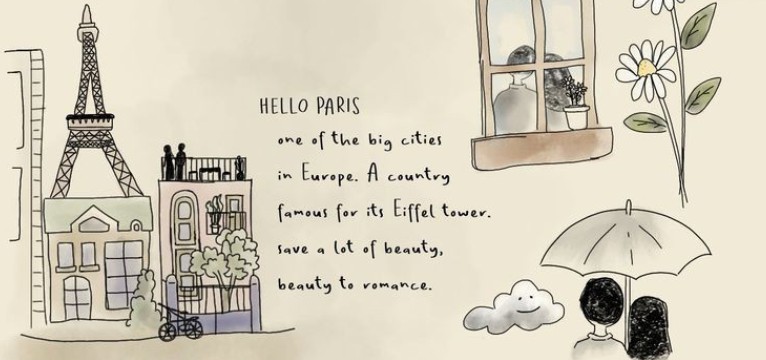 HELLO PARIS
one of the big cities
in Europe. A country
famous for its Eiffel tower.
save a lot of beauty,
beauty to romance.